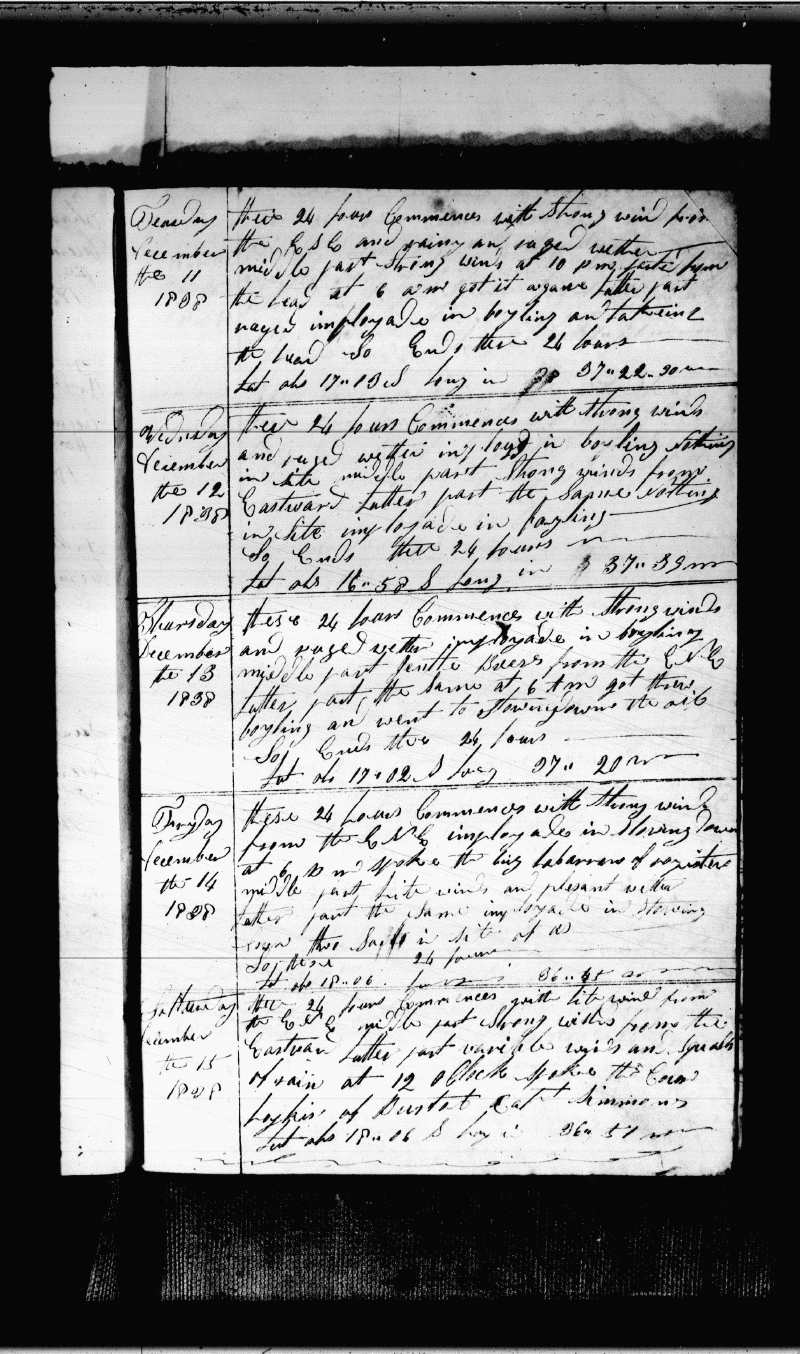 Teusday
December
the 11
1838
these 24 hours Commences with Strong wind from
the E S E and rainy and raged wether
middle part Strong winds at 10 p m from
the head at 6 a m got it agane latter part
raged imployade in boyling an
the head So Ends these 24 hours
Lat obs 17" 13 S long in 37" 22 - 30
Wednsday
December
the 12
1838
these 24 hours Commences with Strong winds
and raged wether imployd in boyling Nothing
in Site middle part Strong winds from
Eastward Latter part the Same Nothing
in Site imployade in boyling
So Ends these 24 hours
Lat obs 16" 58 S Long in 37" 39
Thursday
December
the 13
1838
these 24 hours Commences with Strong winds
and raged wether imployade in boyling
middle part from the E N E
Latter part the Same at 6 A m got threw
boyling an went to Stowing downe the oil
So Ends these 24 hours
Lat obs 17" 02 S long 37" 20
Fryday
December
the 14
1838
these 24 hours Commences with Strong wind
from the E N E imployade in Stowing down
at 6 m spoke the brig of
middle part Lite winds and plesant wether
latter part the Same imployade in Stowing
down three Sails in Site of us
So these 24 hours
Lat obs 18" 06 36"
December
the 15
1838
these 24 hours Commences with lite wind from
the E N E middle part Strong winds from the
Eastward Latter part varible winds and Squals
of rain at 12 oClock Spoke the
of Capt Simmons
Lat obs 18" 06 S long in 36" 51